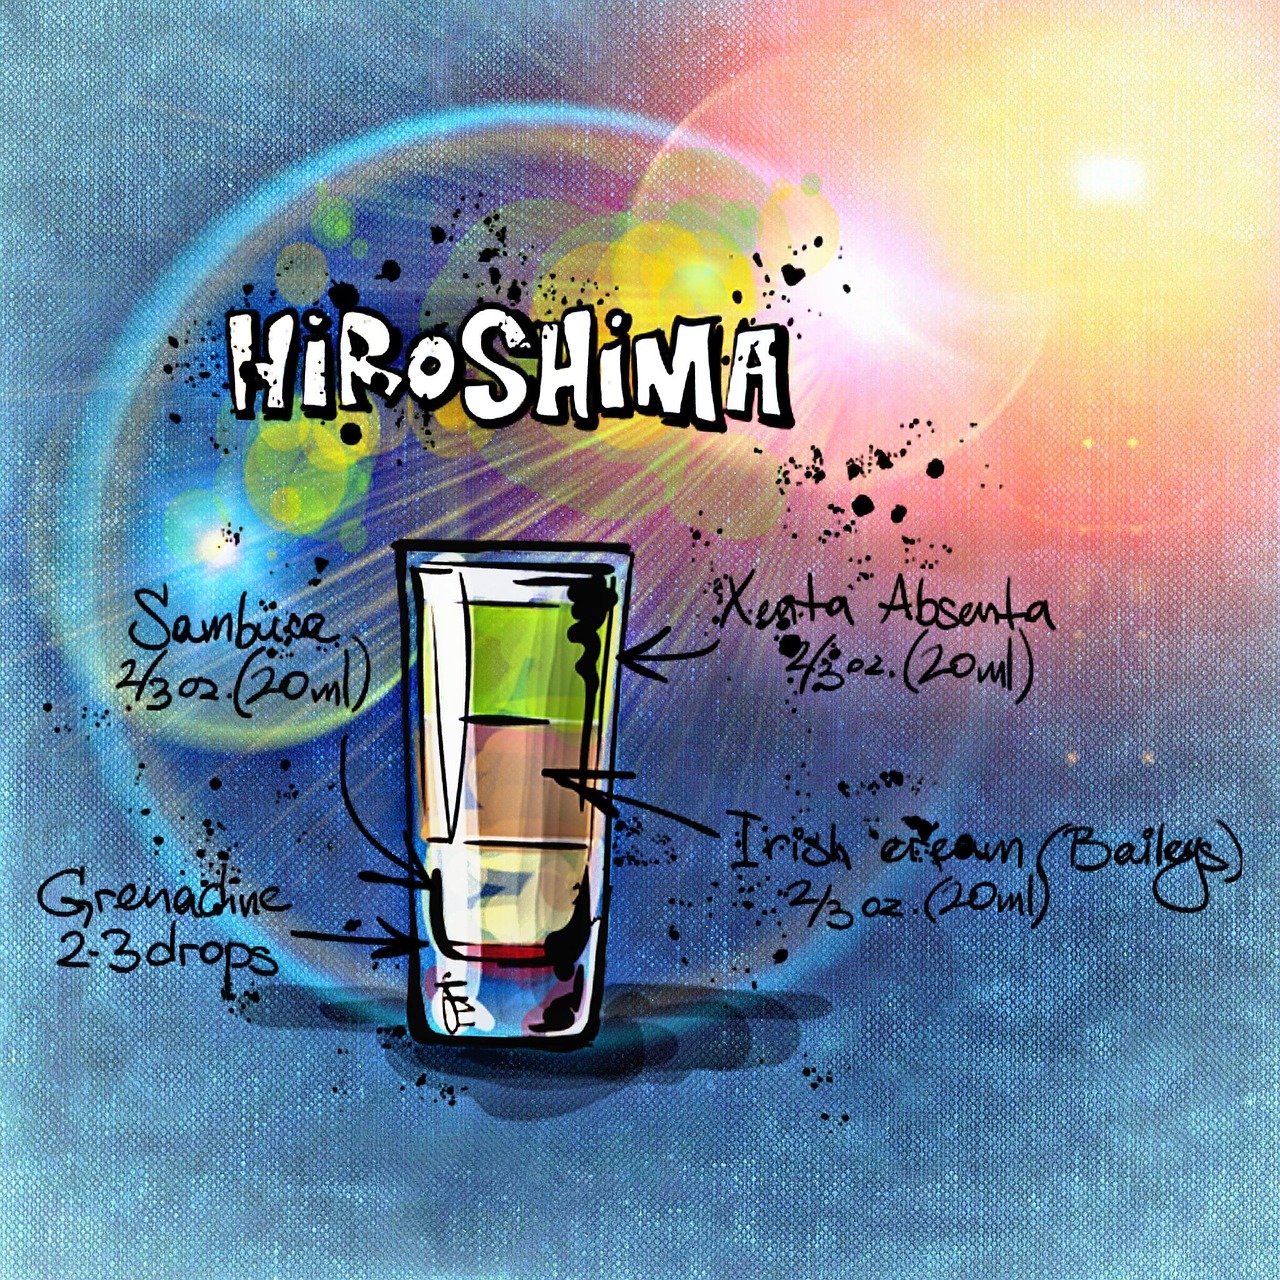 HiROSHiMA
Sambuca
2/3 oz. (20ml)
Xenta Absenta
2/3 oz. (20ml)
Irish cream (Baileys)
2/3 oz. (20ml)
Grenadine
2-3 drops